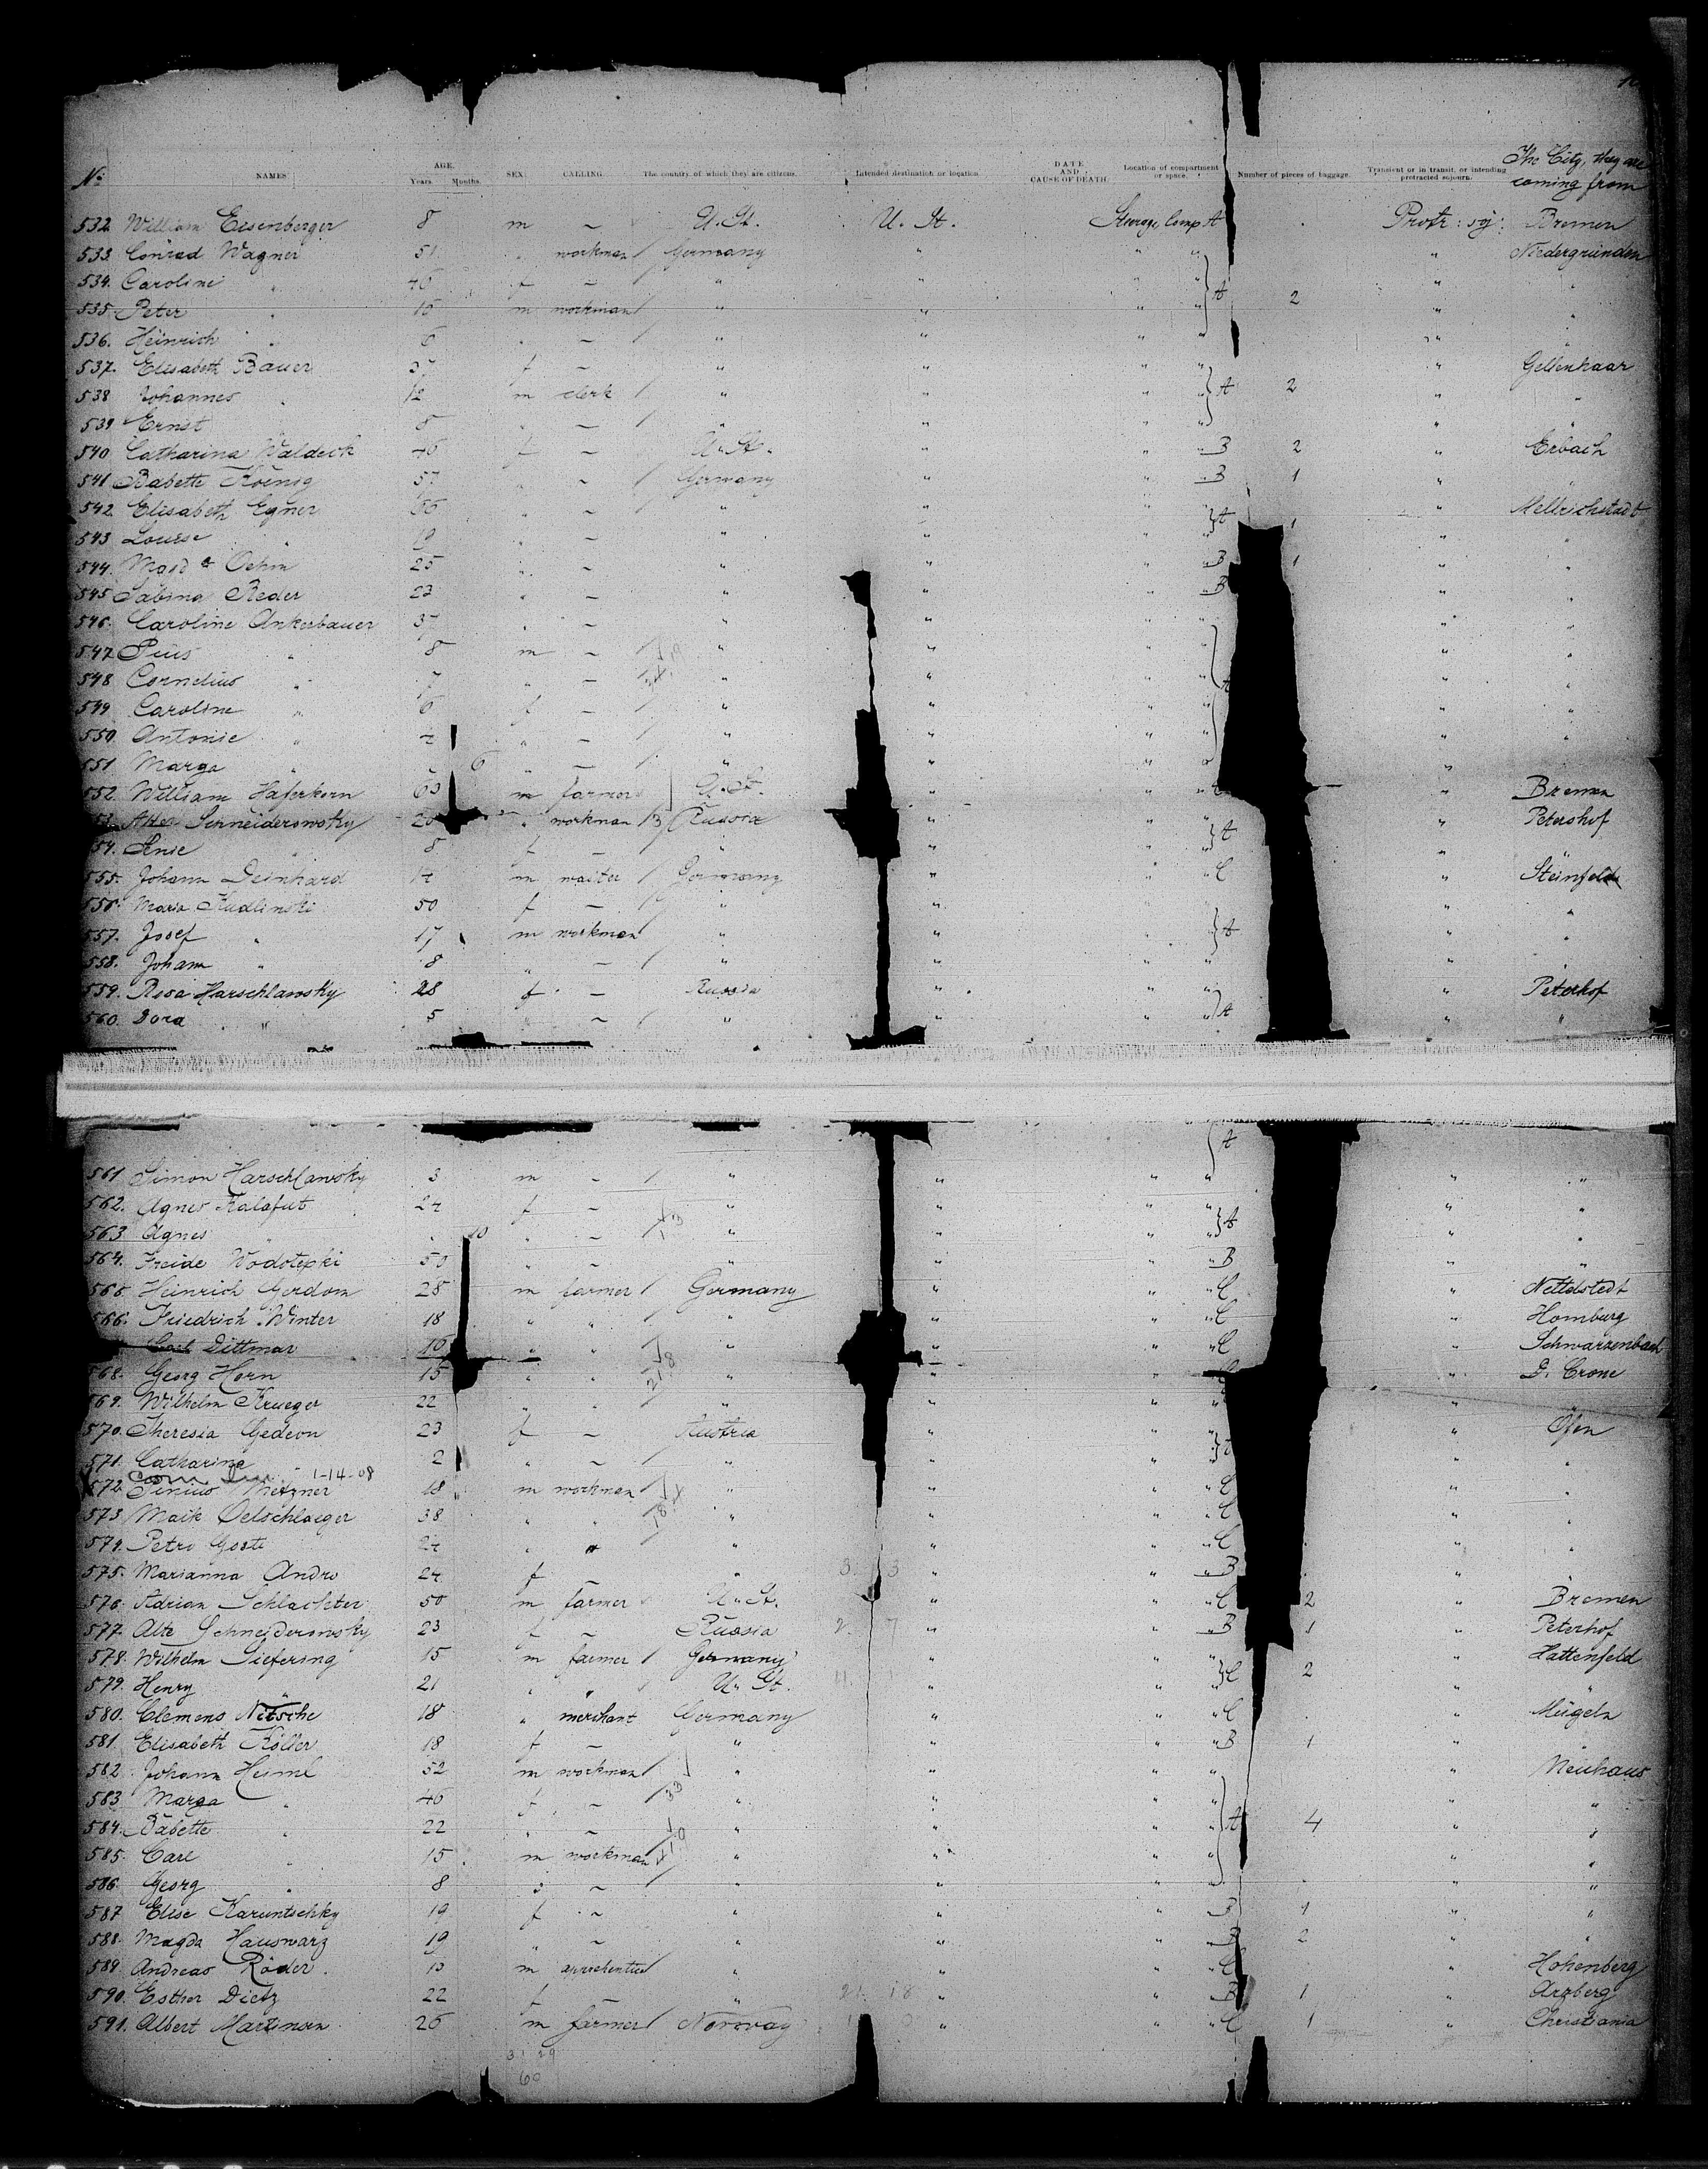 No. NAMES AGE. Years. Months. SEX. CALLING. The country of which they are citizens. Intended destination or location. DATE AND CAUSE OF DEATH. Location of compartment or space. Number of pieces of baggage. Transient or in transit, or intending protracted sojourn. The City, they are coming from
532. William Eisenberger 8 m ~ U. St. U. St. Steerage, Comp A Protr: soj: Bremen
533. Conrad Wagner 51 " workman / Germany " " " " Niedergründen
534. Caroline " 46 f ~ " " " " "
535. Peter " 16 m workman / " " " " A 2 " "
536. Heinrich " 6 " ~ / " " " " " "
537. Elisabeth Bauer 37 f ~ " " " " " Gellenhaar
538 Johannes " 12 m clerk / " " " " A 2 " "
539 Ernst " 8 " ~ / " " " " " "
540 Catharina Waldeck 46 f ~ U. St. " " " B 2 " Erbach
541 Babette Koenig 57 " ~ / Germany " " " B 1 " "
542. Elisabeth Egner 56 " ~ " " " " A 1 " Mellrichstadt
543 Louise " 19 " ~ " " " " " "
544. Oehm 25 " ~ " " " " B 1 " "
545 Sabina Reder 23 " ~ " " " " B " "
546. Caroline Ankerbauer 37 " ~ " " " " " "
547 Pius " 8 m ~ / " " " " " "
548 Cornelius " 7 " ~ / " " " " A " "
549 Caroline " 6 f ~ / " " " " " "
550 Antonie " " ~ / " " " " " "
551 Marga " 6 " ~ / " " " " " "
552. William Haferkorn 63 m farmer U. St. " " " " Bremen
Schneiderowsky workman / Russia " " " " Petershof
54. " 8 f ~ " " " " A " "
555. Johann Deinhard 14 m waiter / Germany " " " C " Steinfeld
556. Maria Kudlinski 50 f ~ / " " " " " "
557. Josef " 17 m workman " " " " A " "
558. Johann " 8 " ~ / " " " " " "
559. Rosa Harschlawsky 28 f ~ Russia " " " " Peterhof
560. Dora " 5 " ~ / " " " " A " "
A
561 Simon Harschlawsky 3 m ~ / " " " " " "
562. Agnes Kalafut 24 f ~ " " " " " "
563 Agnes " 10 " ~ / " " " " A " "
564. Freide Wodotepki 50 " ~ " " " " B " "
565 Heinrich Gerdom 28 m farmer / Germany " " " C " Nettelstedt
566. Friedrich Winter 18 " " / " " " " C " Homburg
Carl Dittmar 16 " " / " " " " C " Schwarzenbach
568. Georg Horn 15 " " " " " " " D. Crone
569. Wilhelm Krueger 22 " " / " " " " " "
570. Theresia Gedeon 23 f ~ Austria " " " " Ofen
571. Catharina 2 " ~ / " " " " " "
1-14-08
572. Metzner 18 m workman / " " " " C " "
573 Maik Oelschlaeger 38 " " " " " " C " "
574. Petro 24 " " " " " " C " "
575. Marianna Andro 24 f ~ " 3. 3 " " " B " "
576. Adrian Schlachter 50 m farmer U. St. " " " C 2 " Bremen
577. Alte Schneiderowsky 23 f ~ Russia 2. 7 " " " B 1 " Peterhof
578. Wilhelm Siefering 15 m farmer / Germany " " " C 2 " Hattenfeld
579. Henry " 21 " " U. St. " " " " "
580. Clemens Nitsche 18 " merchant Germany " " " C " Mügeln
581. Elisabeth Köller 18 f ~ " " " " B 1 " "
582. Johann Heiml 52 m workman / " " " " " Neuhaus
583 Marga " 46 f ~ " " " " " "
584. Babette " 22 " ~ " " " " A 4 " "
585. Carl " 15 m workman " " " " " "
586. Georg " 8 " ~ / " " " " " "
587 Elise Karuntschky 19 f ~ " " " " B 1 " "
588. Magda Hauswarz 19 " ~ " " " " B 2 " "
589 Andreas Röder. 15 m apprehentice " " " " C " Hohenberg
590. Esther Dietz 22 f " 21. 18 " " " B 1 " Arzberg
591. Albert Martinsen 26 m farmer / Norway " " " C 1 " Christiania
31 29
60